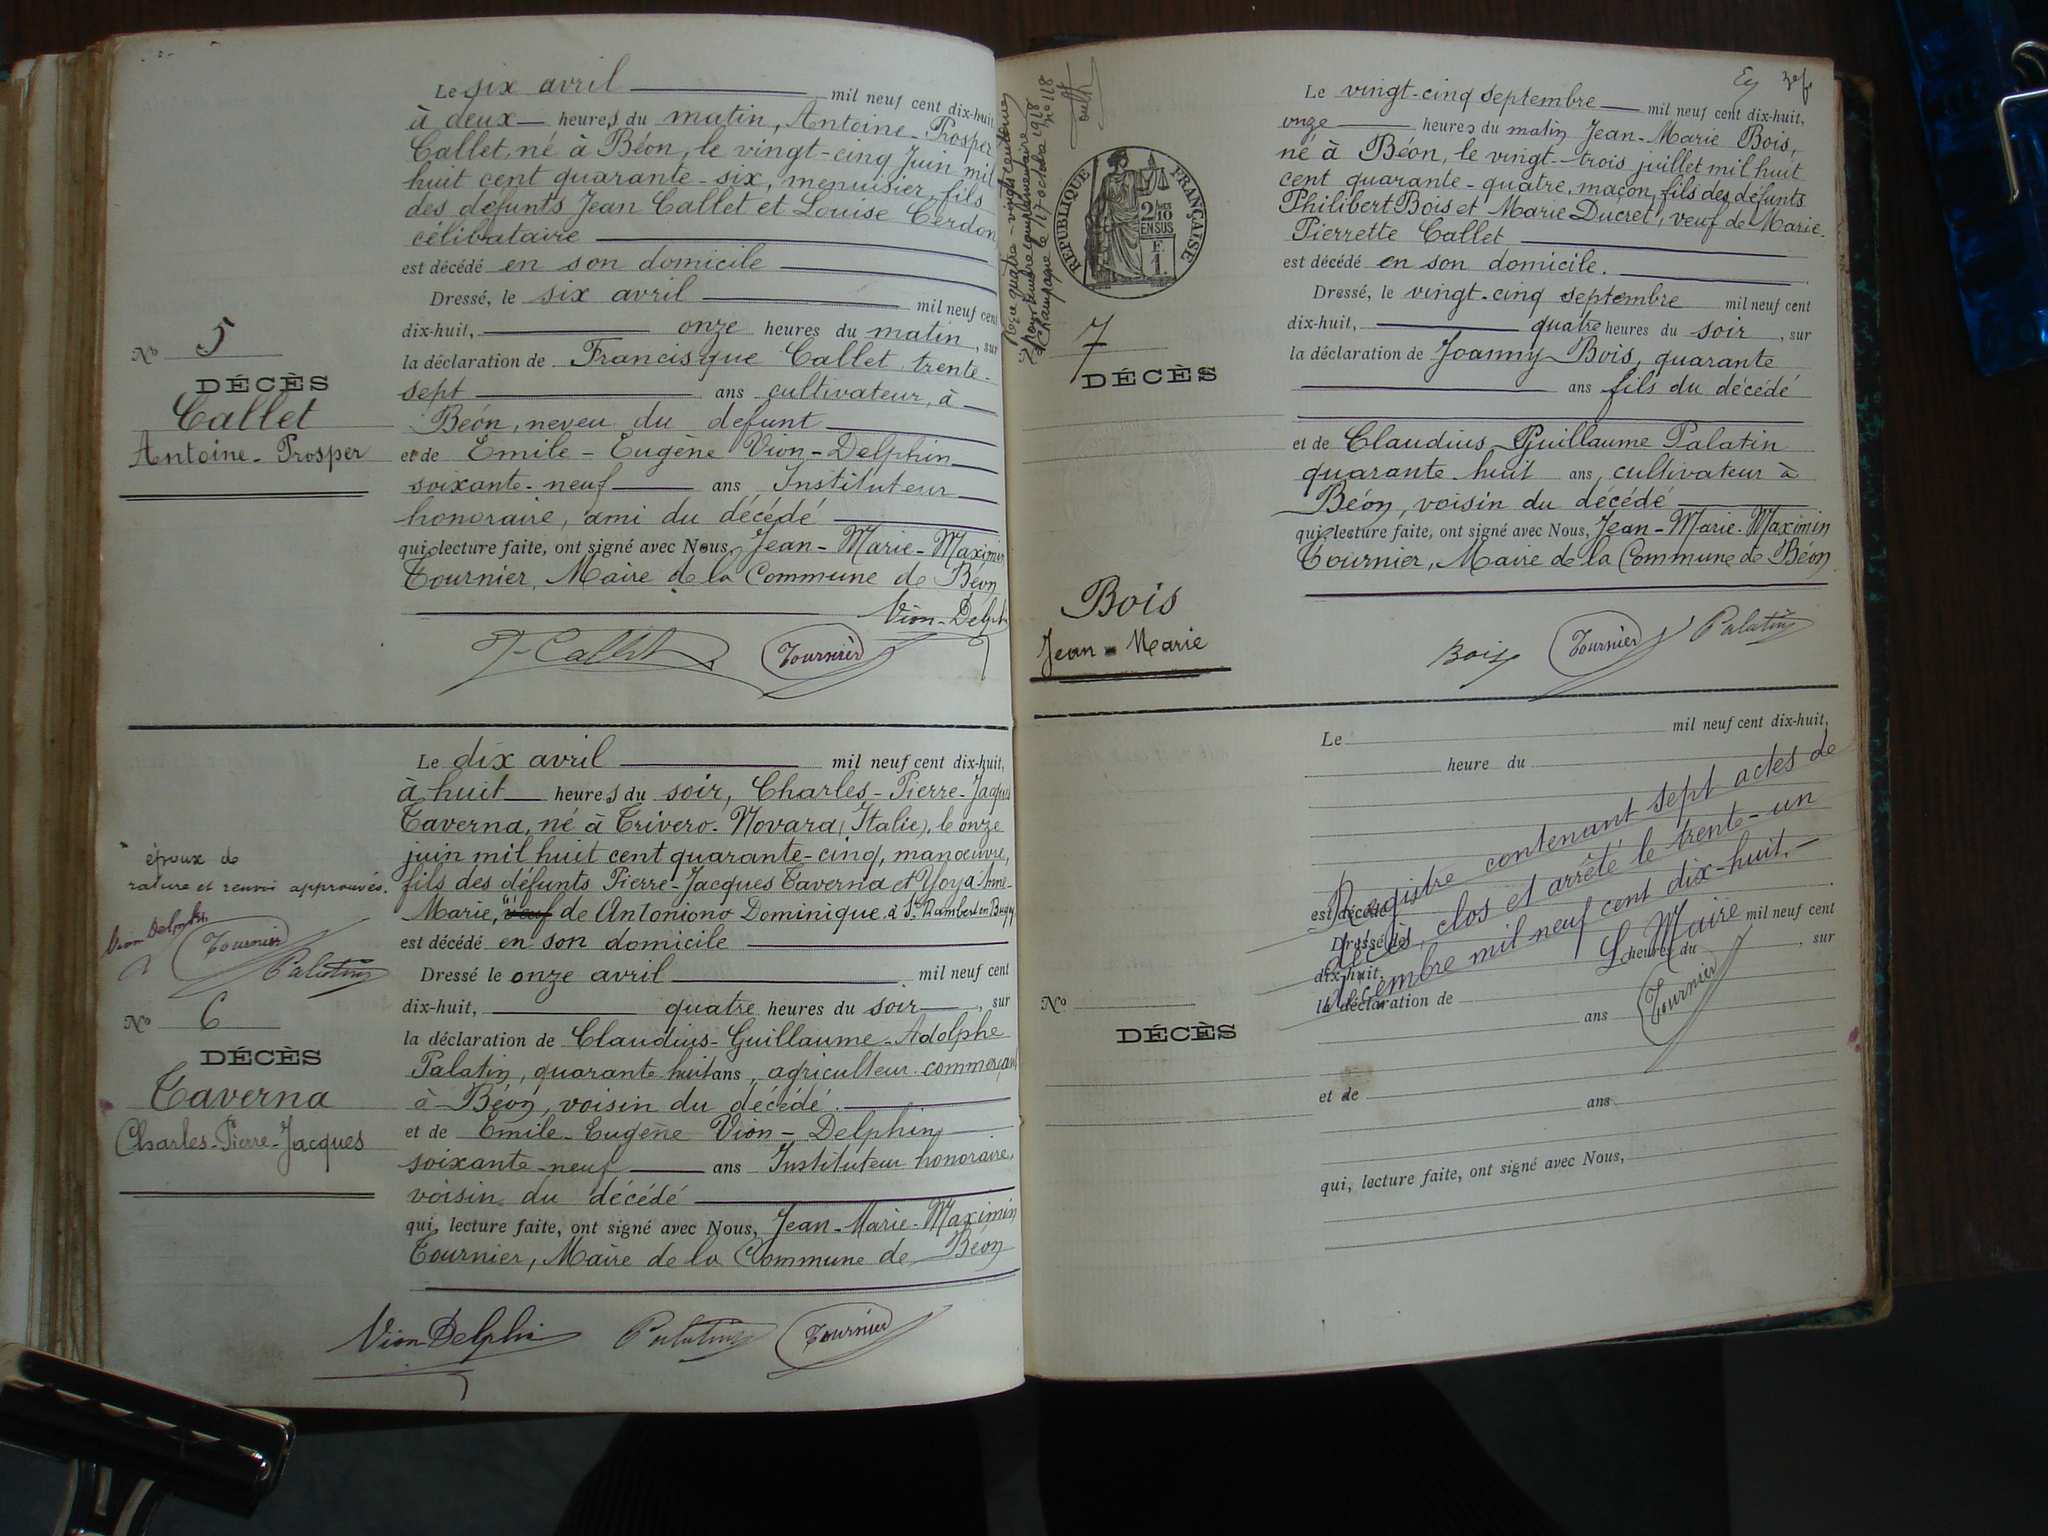 Le six avril mil neuf cent dix-huit
à deux heures du matin, Antoine-Prosper
Callet, né à Béon, le vingt-cinq Juin mil
huit cent quarante-six, menuisier, fils
des défunts Jean Callet et Louise Cerdon
célibataire
est décédé en son domicile
Dressé, le six avril mil neuf cent
dix-huit, onze heures du matin, sur
la déclaration de Francisque Callet trente-
sept ans cultivateur, à
Béon, neveu du defunt
et de Emile-Eugène Vion-Delphin
soixante-neuf ans, Instituteur
honoraire, ami du décédé
qui, lecture faite, ont signé avec Nous, Jean-Marie-Maximin
Tournier, Maire de la Commune de Béon
Vion-Delph
Callet Tournier
No 5
DÉCÈS
Callet
Antoine-Prosper
Le dix avril mil neuf cent dix-huit,
à huit heures du soir, Charles-Pierre-Jacques
Taverna, né à Trivero-Novara (Italie), le onze
juin mil huit cent quarante-cinq, manoeuvre,
fils des défunts Pierre-Jacques Taverna et Yoya Anne-
Marie, veuf de Antoniono Dominique, à St Rambert en Bugey
est décédé en son domicile
Dressé le onze avril mil neuf cent
dix-huit, quatre heures du soir, sur
la déclaration de Claudius-Guillaume-Adolphe
Palatin, quarante huit ans, agriculteur commerçant
à Béon, voisin du décédé.
et de Emile-Eugène Vion-Delphin
soixante-neuf ans Instituteur honoraire,
voisin du décédé
qui, lecture faite, ont signé avec Nous, Jean-Marie-Maximin
Tournier, Maire de la Commune de Béon
Vion Delphin Palatin Tournier
époux de
rature et renvoi approuvés.
Vion Delphin Tournier
Palatin
No 6
DÉCÈS
Taverna
Charles-Pierre-Jacques
supplémentaire
à Champagne le 17 octobre 1918
No 118
RÉPUBLIQUE FRANÇAISE
2/10
EN SUS
F.
1.
7
DÉCÈS
Bois
Jean-Marie
Le vingt-cinq septembre mil neuf cent dix-huit,
onze heures du matin Jean-Marie Bois,
né à Béon, le vingt-trois juillet mil huit
cent quarante-quatre, maçon, fils des défunts
Philibert Bois et Marie Ducret, veuf de Marie-
Pierrette Callet
est décédé en son domicile.
Dressé, le vingt-cinq septembre mil neuf cent
dix-huit, quatre heures du soir, sur
la déclaration de Joanny Bois, quarante
ans fils du décédé
et de Claudius-Guillaume Palatin
quarante huit ans, cultivateur à
Béon, voisin du décédé
qui, lecture faite, ont signé avec Nous, Jean-Marie-Maximin
Tournier, Maire de la Commune de Béon
Bois Tournier Palatin
Le mil neuf cent dix-huit,
heure du
Registre contenant sept actes de
décès, clos et arrêté le trente-un
décembre mil neuf cent dix-huit.
Le Maire
Tournier
est décédé
Dressé, le mil neuf cent
dix-huit, heures du , sur
la déclaration de
ans
et de
ans
qui, lecture faite, ont signé avec Nous,
No
DÉCÈS